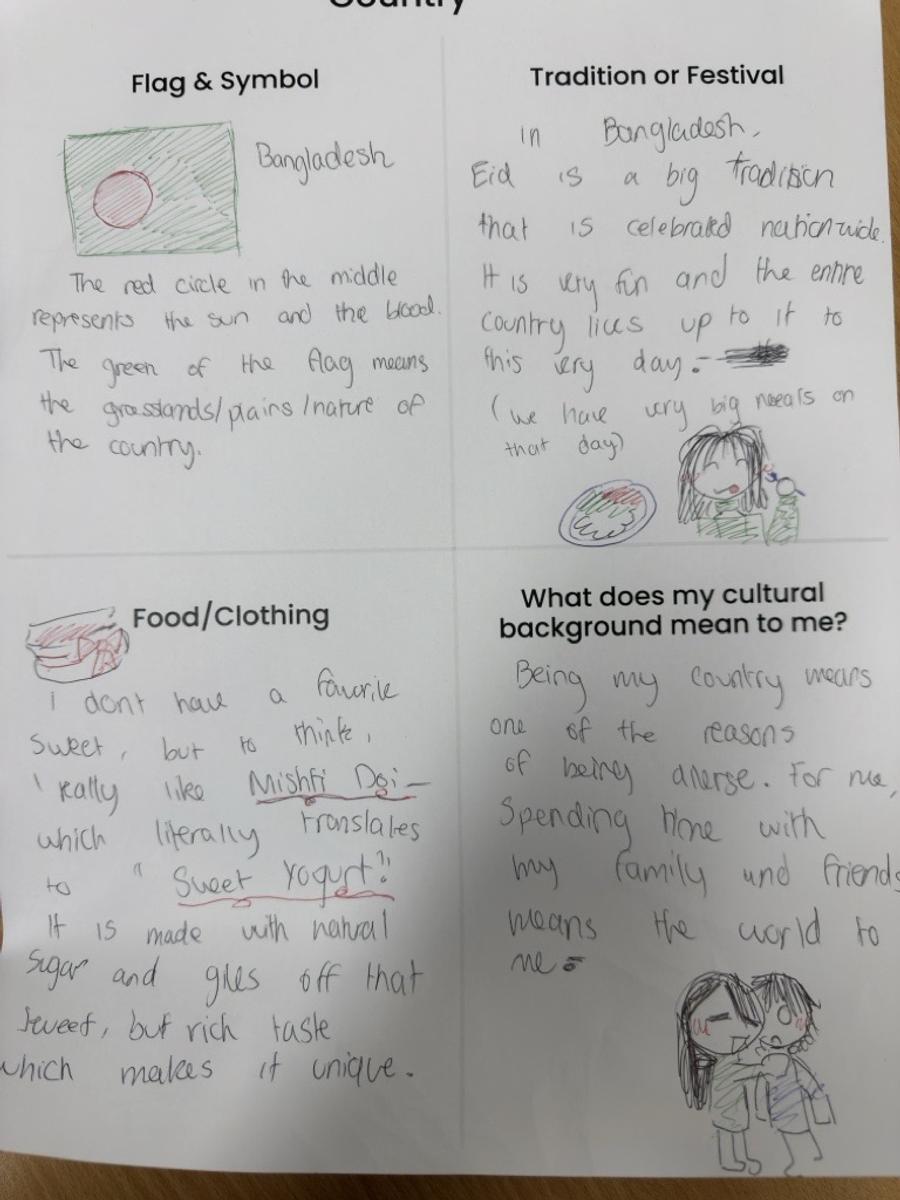 Country
Flag & Symbol
Bangladesh
The red circle in the middle
represents the sun and the blood.
The green of the flag means
the grasslands/plains/nature of
the country.
Tradition or Festival
in Bangladesh,
Eid is a big tradition
that is celebrated nationwide.
It is very fun and the entire
country lives up to it to
this very day.
(we have very big meals on
that day)
Food/Clothing
i dont have a favorite
sweet, but to think,
i really like Mishti Doi-
which literally translates
to "Sweet Yogurt"
It is made with natural
sugar and gives off that
sweet, but rich taste
which makes it unique.
What does my cultural
background mean to me?
Being my country means
one of the reasons
of being diverse. For me,
Spending time with
my family and friends
means the world to
me.